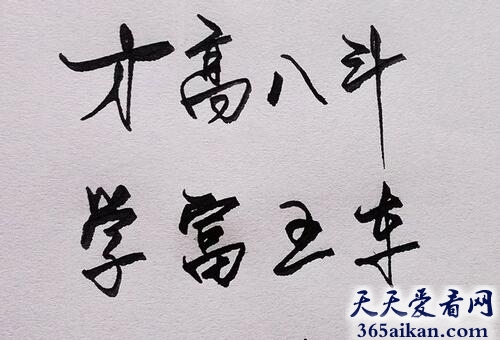 才高八斗
学富五车
天天爱看网
365aikan.com